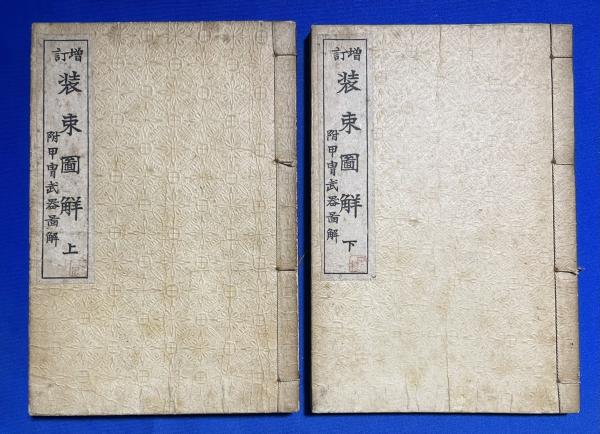 増訂
装束圖觧
附甲冑武器圖解
上
増訂
装束圖觧
附甲冑武器圖解
下